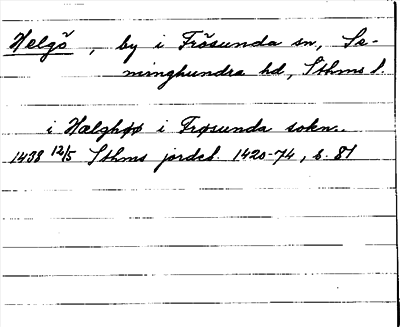 Helgö, by i Frösunda sn, Se-
minghundra hd, Sthms l.
i Hælghøø i Frøsunda sokn..
1438 12/5 Sthms jordeb. 1420-74, s. 81